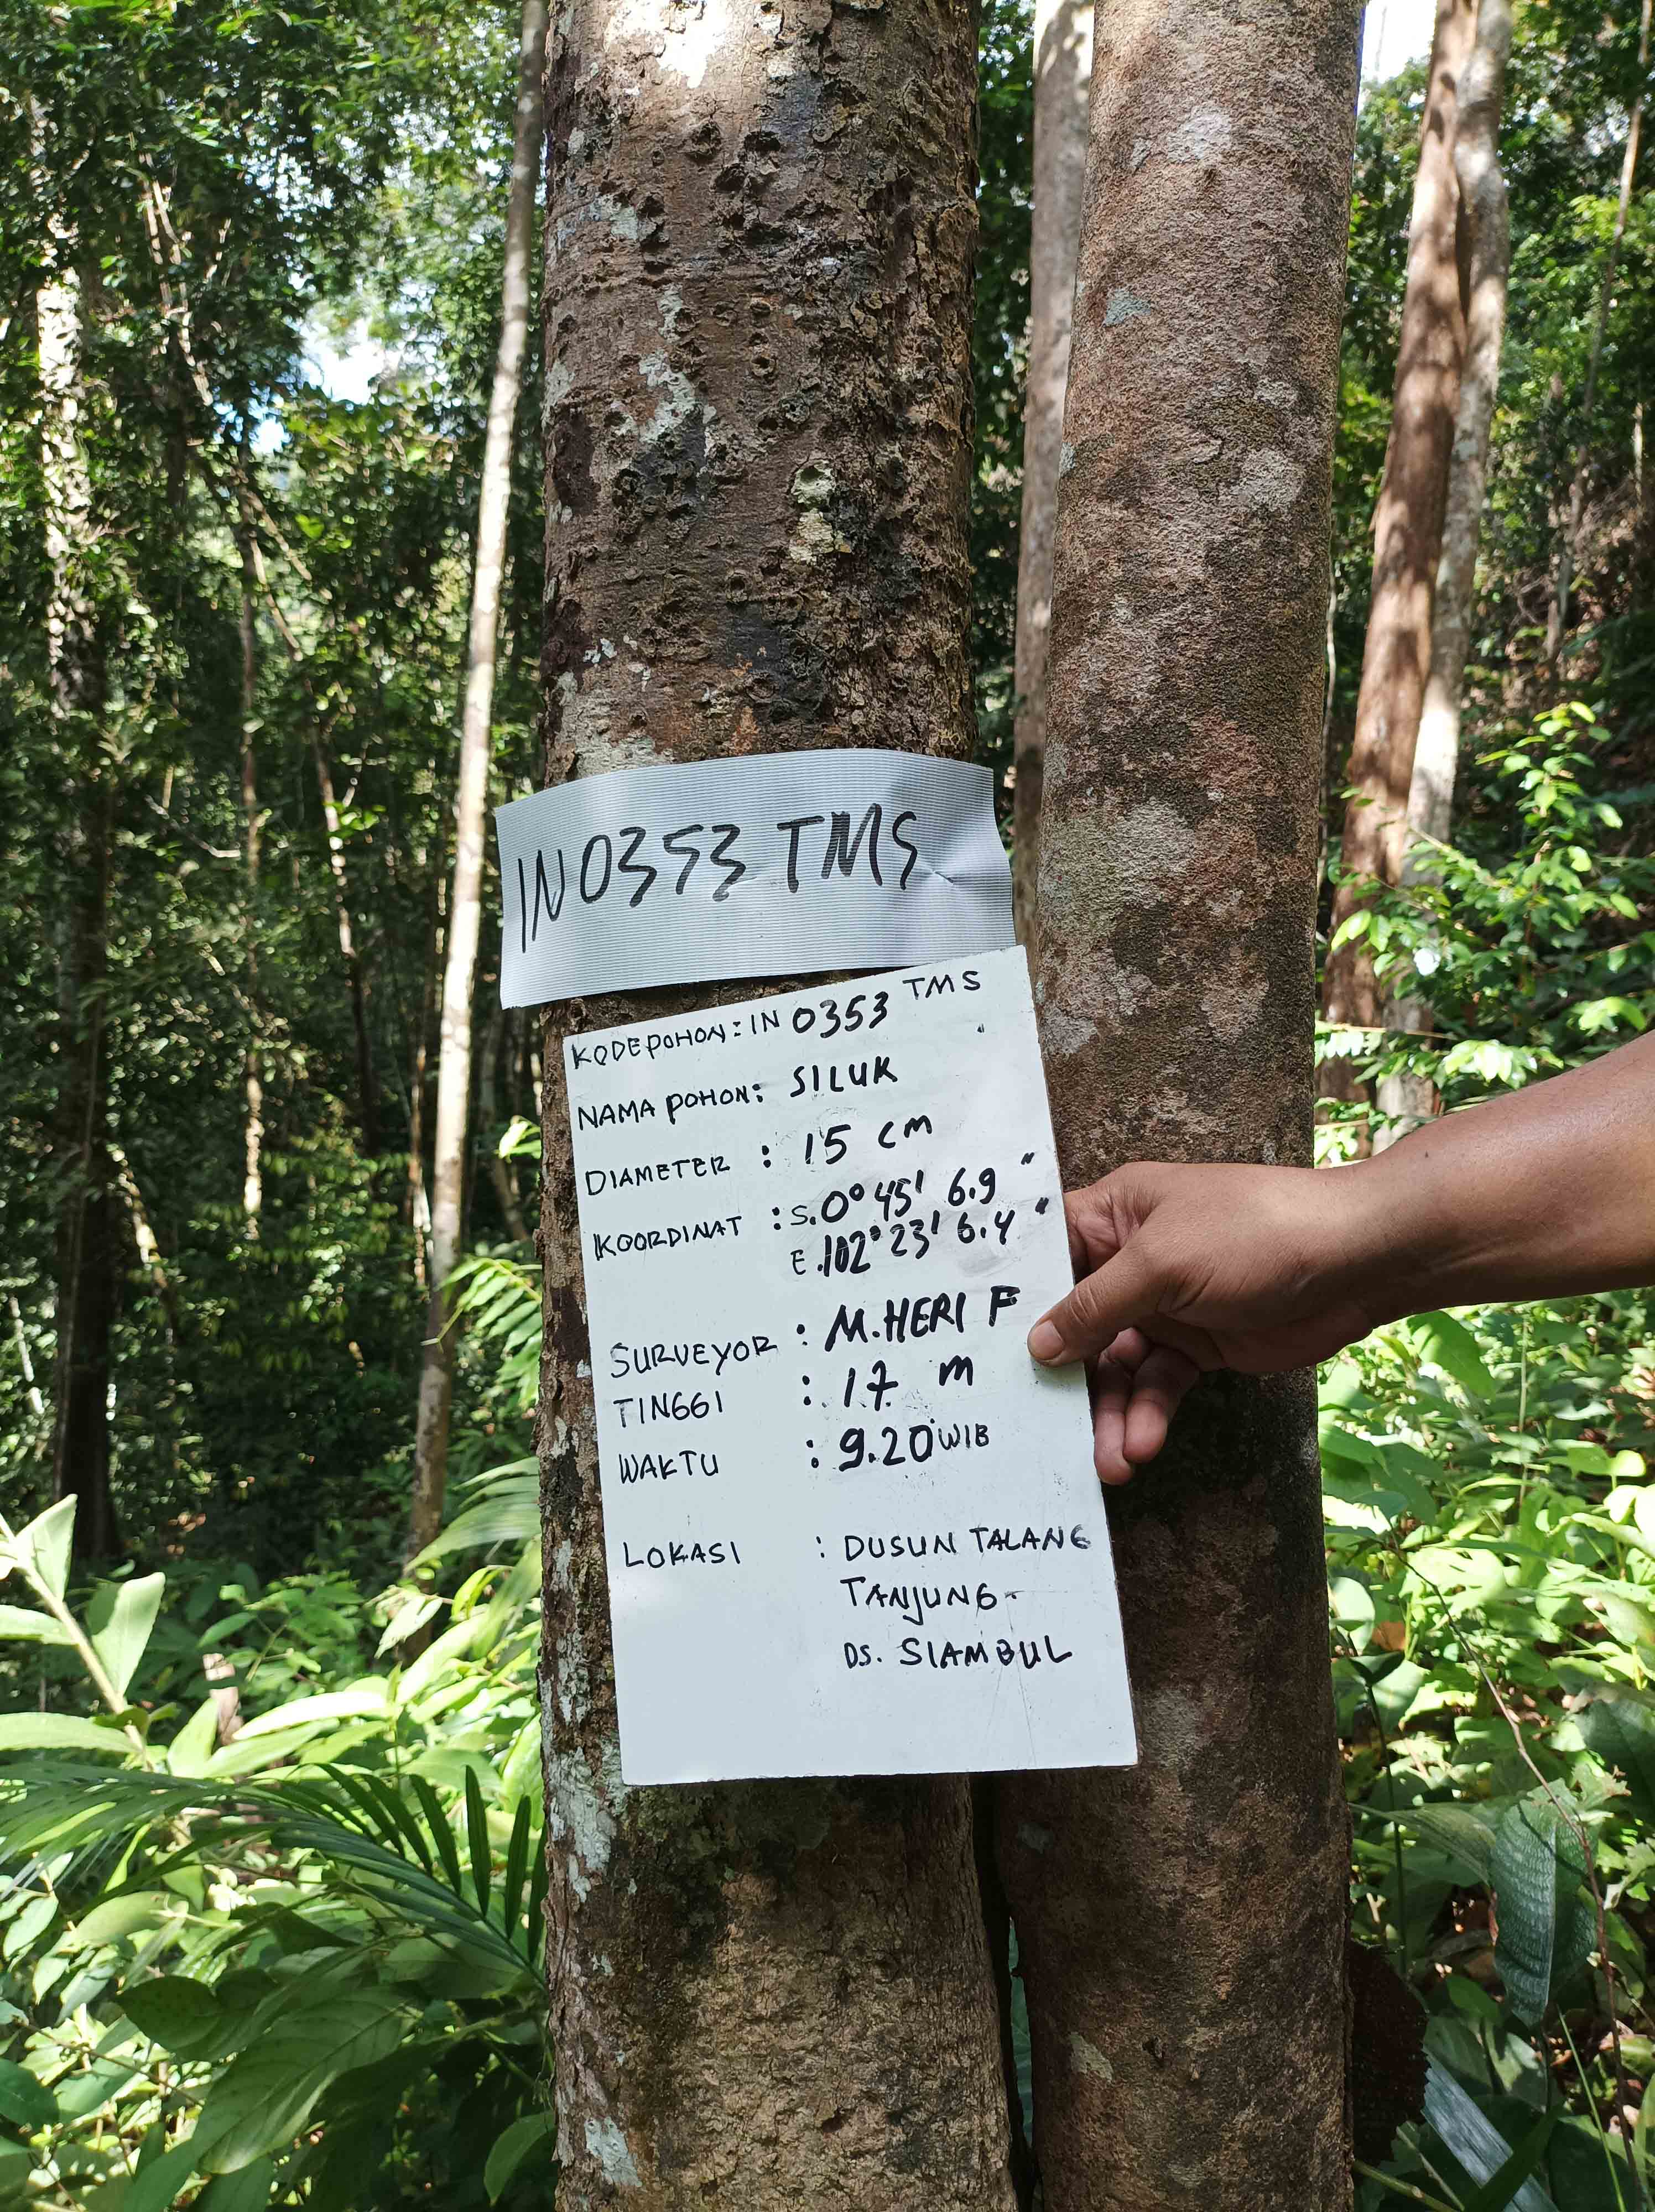 IN0353 TMS
KODE POHON: IN 0353 TMS
NAMA POHON: SILUK
DIAMETER : 15 cm
KOORDINAT : S.0° 45' 6.9 "
E.102° 23' 6.4 "
SURVEYOR : M.HERI F
TINGGI : 17 m
WAKTU : 9.20 WIB
LOKASI : DUSUN TALANG
TANJUNG-
DS. SIAMBUL